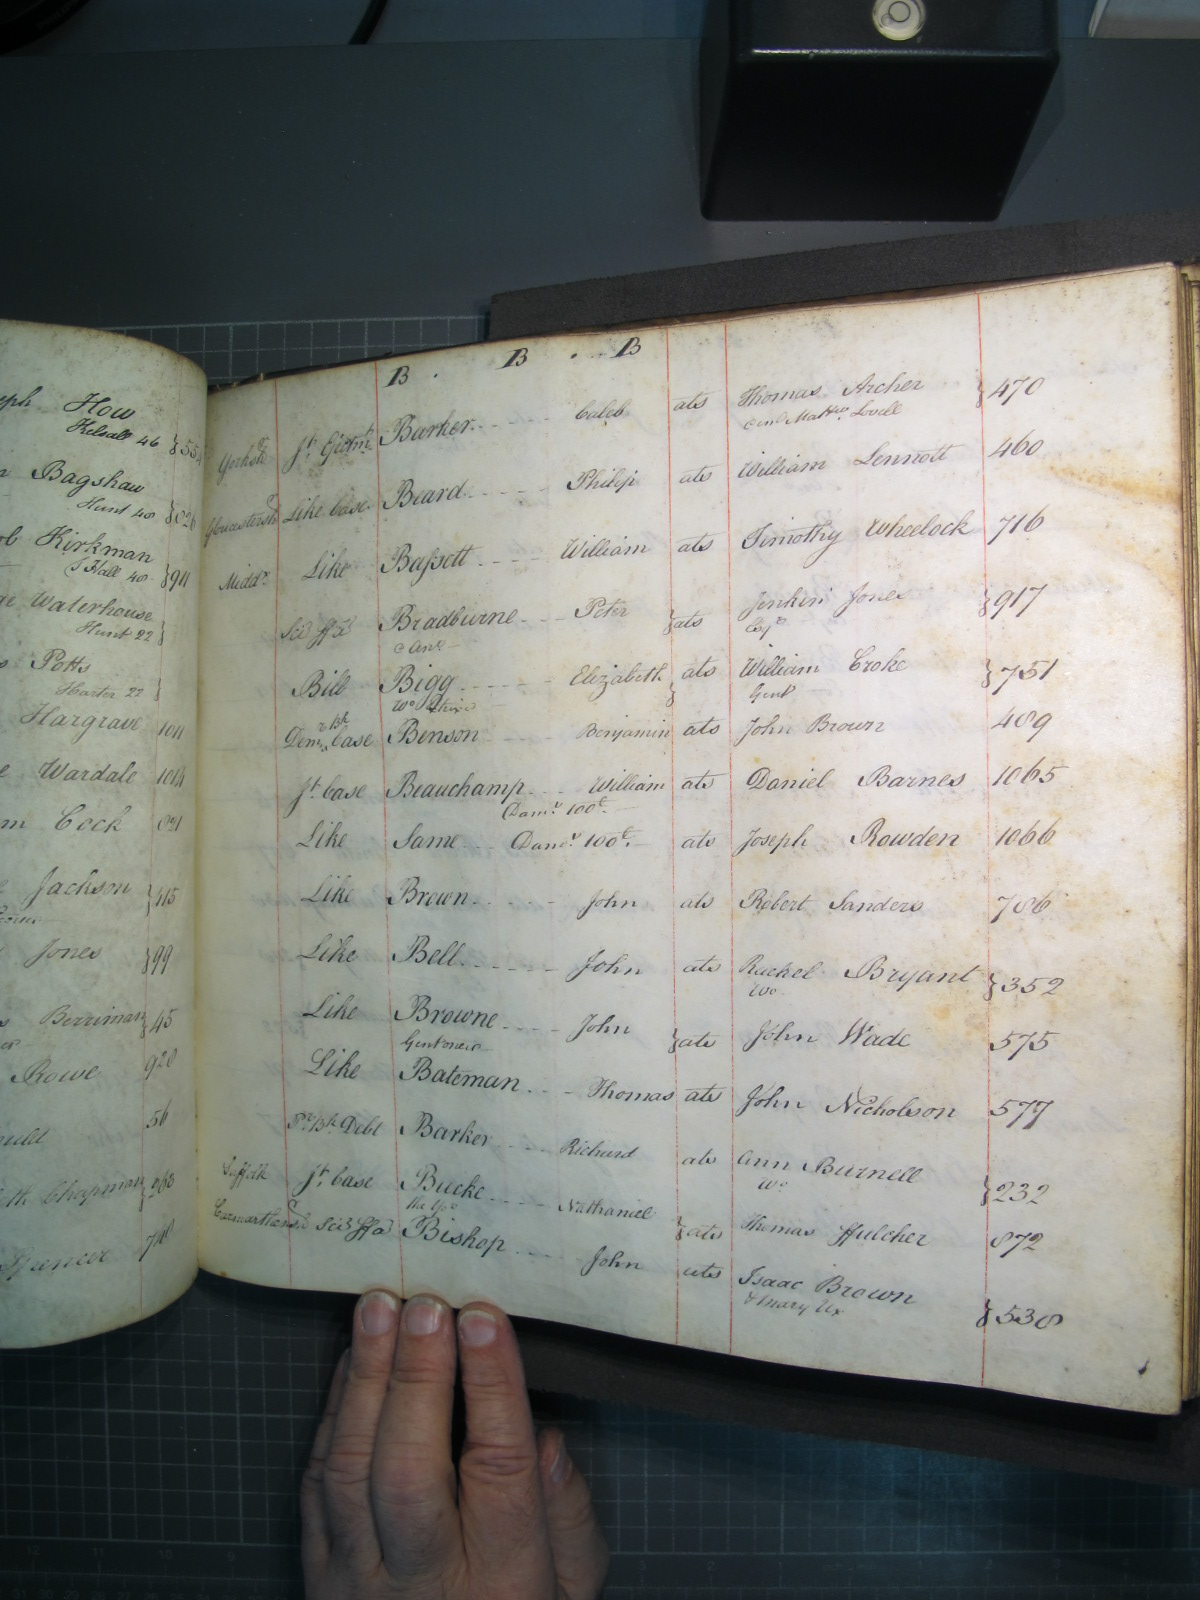 eph How
Kelsall 46 } 554
Bagshaw
Hunt 40 } 826
Kirkman
J Hall 40 } 911
Waterhouse
Hunt 22 }
Potts
Harter 22 }
Hargrave 1011
Wardale 1014
m Cock 821
Jackson } 415
Jones } 99
Berriman } 45
Rowe 920
56
Chapman } 260
Spencer 740
B . B . . B
Yorksh Jt. Ejectmt. Barker Caleb ats Thomas Archer } 470
Lovell
Gloucestersh Like Case Beard Philip ats William Lennott 460
Middx Like Bassett William ats Timothy Wheelock 716
Sci ffa Bradburne Peter } ats Jenkin Jones } 917
Esqr
Bill Bigg Elizabeth } ats William Croke } 751
Wo Gent
Case Benson Benjamin ats John Brown 489
Jt. Case Beauchamp William ats Daniel Barnes 1065
Dams 100£
Like Same Dams 100£ ats Joseph Rowden 1066
Like Brown John ats Robert Sanders 786
Like Bell John ats Rachel Bryant } 352
Wo
Like Browne John } ats John Wade 575
Gent
Like Bateman Thomas ats John Nicholson 577
Debt Barker Richard ats Ann Burnell } 232
Wo
Suffolk Jt. Case Bucke Nathaniel } ats Thomas ffulcher 872
the Yor
Sci ffa Bishop John ats Isaac Brown } 538
& Mary Ux